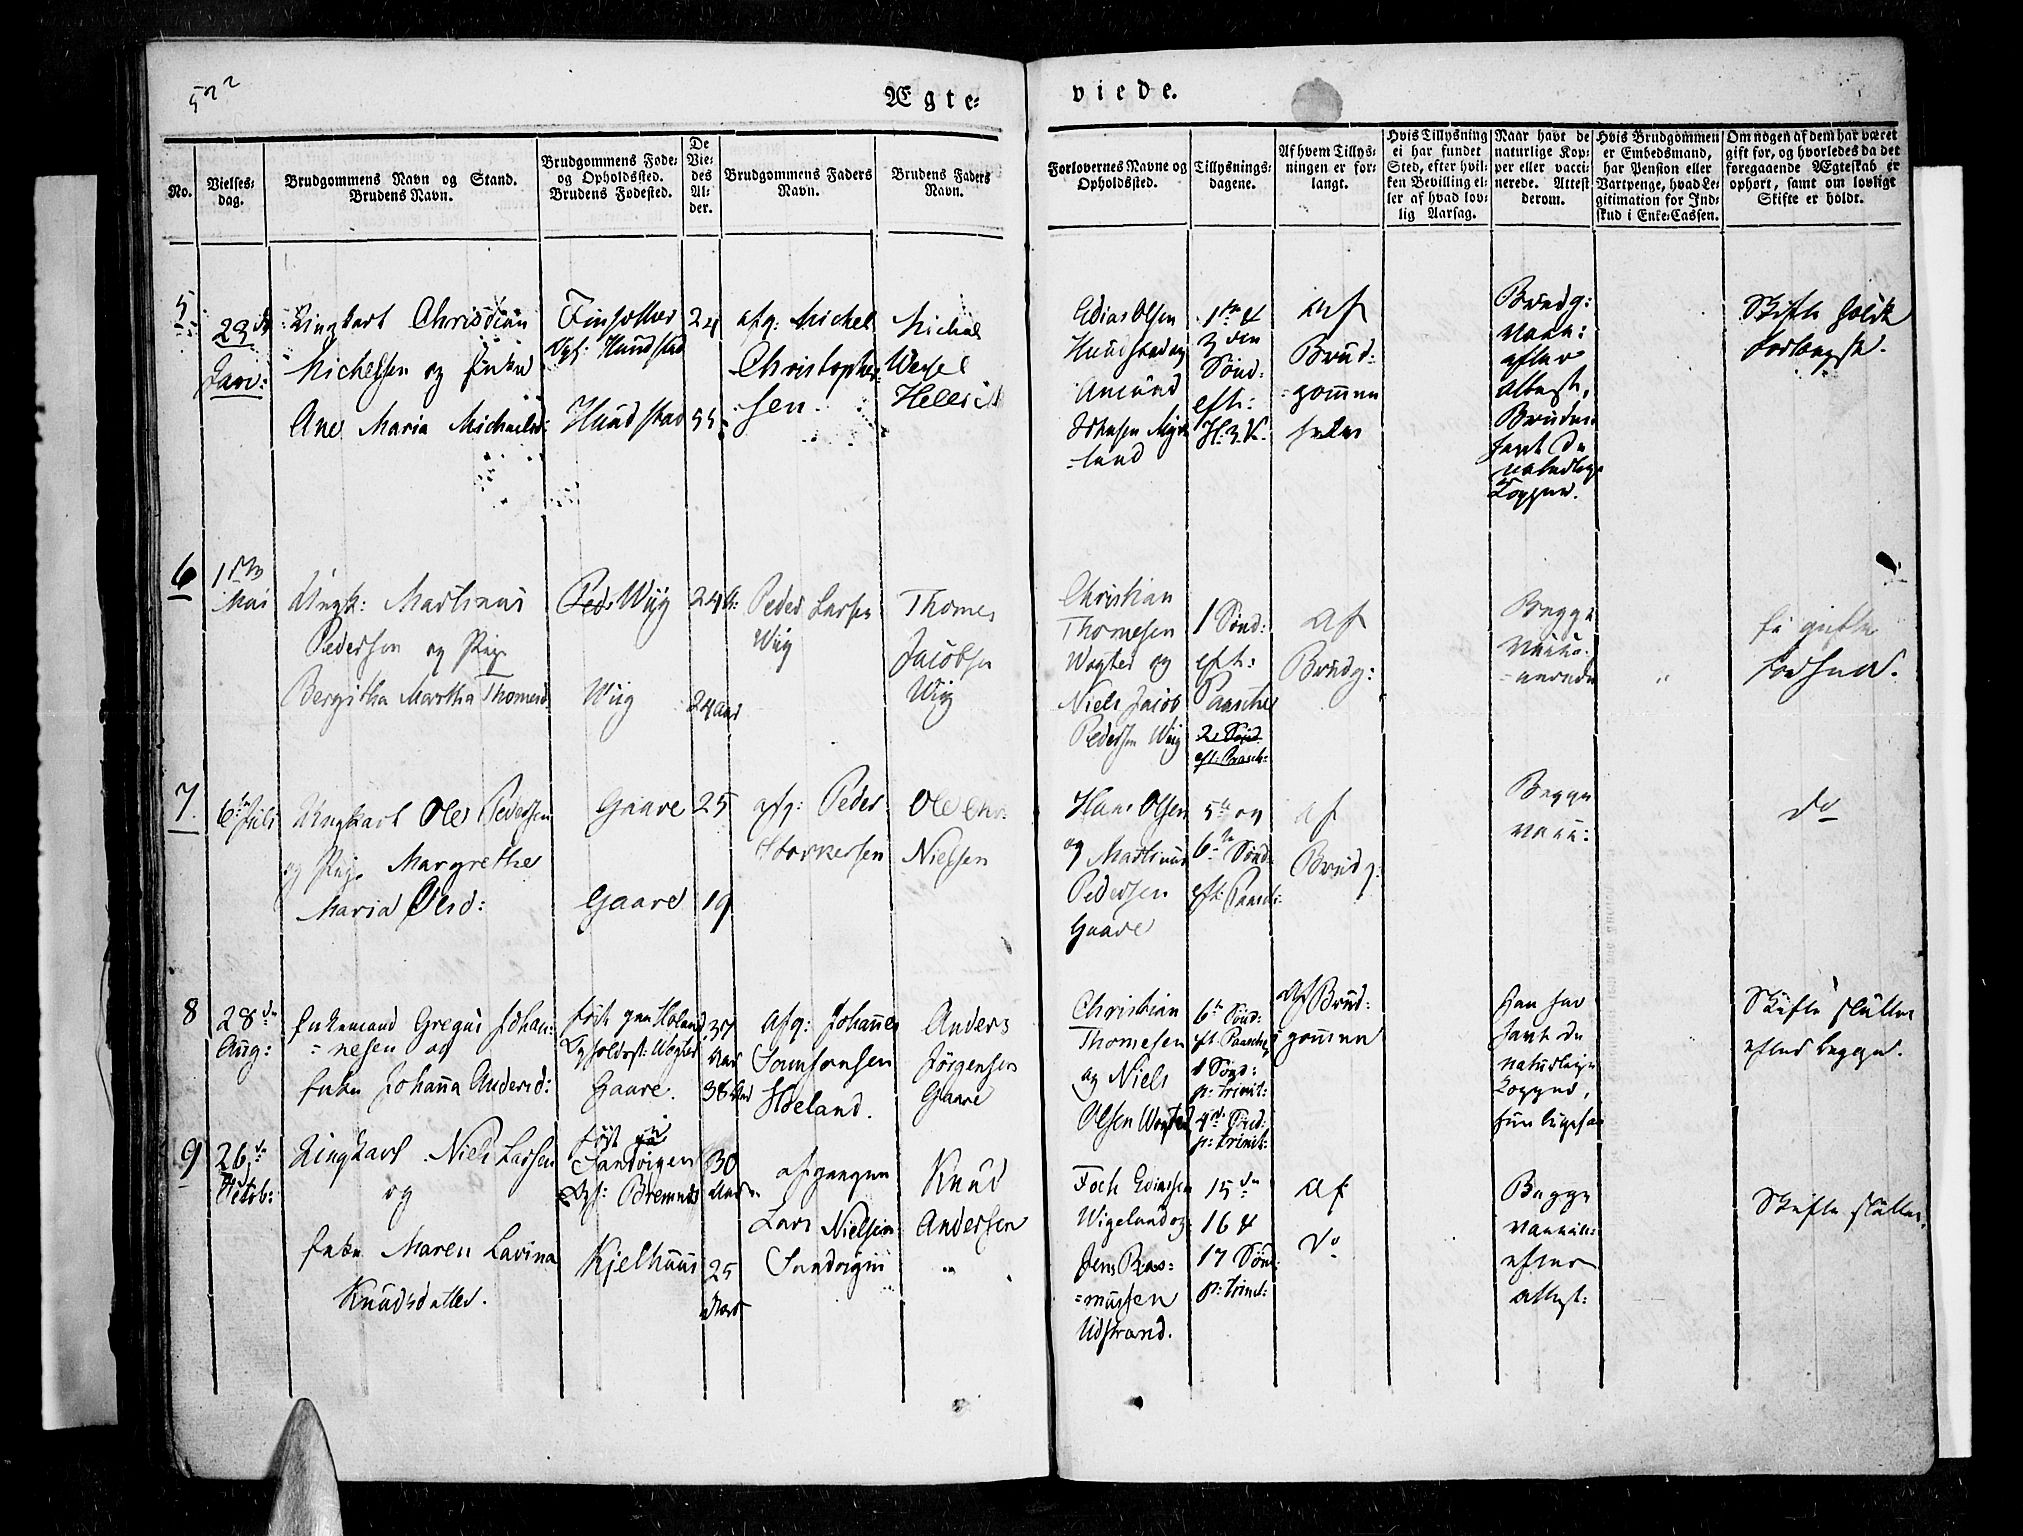 522
Ægte=
viede.
No.
Vielses-
dag.
Brudgommens Navn og Stand.
Brudens Navn.
Brudgommens Føde-
og Opholdssted.
Brudens Fødested.
De
Vie-
des
Al-
der.
Brudgommens Faders
Navn.
Brudens Faders
Navn.
Forlovernes Navne og
Opholdssted.
Tillysnings-
dagene.
Af hvem Tillys-
ningen er for-
langt.
Hvis Tillysning
ei har fundet
Sted, efter hvil-
ken Bevilling el-
ler af hvad lov-
lig Aarsag.
Naar havt de
naturlige Kop-
per eller vacci-
nerede. Attest
derom.
Hvis Brudgommen
er Embedsmand,
har Pension eller
Vartpenge, hvad Le-
gitimation for Ind-
skud i Enke-Cassen.
Om nogen af dem har været
gift før, og hvorledes da det
foregaaende Ægteskab er
ophørt, samt om lovligt
Skifte er holdt.
5.
23de
Jan:
Ungkarl Christian
Michelsen og Enken
Ane Maria Michaelsd:
Hundstad
Hundstad
24
55
afg: Michel
Christopher-
sen.
Michael
Wessel
Edias Olsen
Hundstad og
Amund
Johnsen Myr-
=land
1ste &
3den
Sønd:
eft:
H: 3 K.
af
Brud-
=gommen
selv
Brudg:
vacc:
efter
Attest,
Bruden
havt de
naturlige
Kopper.
Skifte holdt
6
1ste
Mai
Ungk: Martinus
Pedersen og Pige
Bergitha Martha Thomesd.
Wiig
Wiig
24 A:
24 Aar
Peder Larsen
Wiig
Thomes
Jacobsen
Wiig
Christian
Thomesen
Wogter og
Niels Jacob
Pedersen Wiig
1 Sønd:
eft:
Paaske
2. Sønd
eft: Paask:
af
Brudg:
Begge
vacci-
=nerede
"
Ei gifte
forhen.
7.
6te Juli
Ungkarl Ole Pedersen
og Pige Margrethe
Maria Olsd:
Gaare
Gaare
25
19
afg: Peder
Storkersen
Ole Chr:
Nielsen
Hans Olsen
og Martinus
Pedersen
Gaare
5te og
6te Sønd:
eft: Paask:
af
Brudg:
Begge
vacc:
do
8
28de
Aug:
Enkemand Gregus Johan-
=nesen og
Enke Johanna Andersd:
Gaare.
37
Aar
38 Aar
afg: Johannes
Samsonsen
Høeland.
Anders
Jørgensen
Gaare
Christian
Thomesen
og Niels
Olsen Wogter
6te Sønd:
eft: Paaske
1 Sønd:
p: trinit:
4de Sønd:
p: trinit:
Af Brud-
gommen
Han har
havt de
naturlige
Kopper,
hun ligesaa
Skifte sluttet
efter begge.
9
26de
Octob:
Ungkarl Niels Larsen
og
Enke Maren Lavina
Knudsdatter.
Født
Sandvigen
Bremnes
Kjelhuus
30
Aar
25
Aar
afgangen
Lars Nielsen
Sandvigen
Knud
Andersen
"
Foch Ediassen
Wigeland og
Jens Ras-
=mussen
Udstrand.
15de
16 &
17 Sønd:
p: trinit:
af
do
Begge
vaccin:
efter
Attest:
Skifte sluttet.